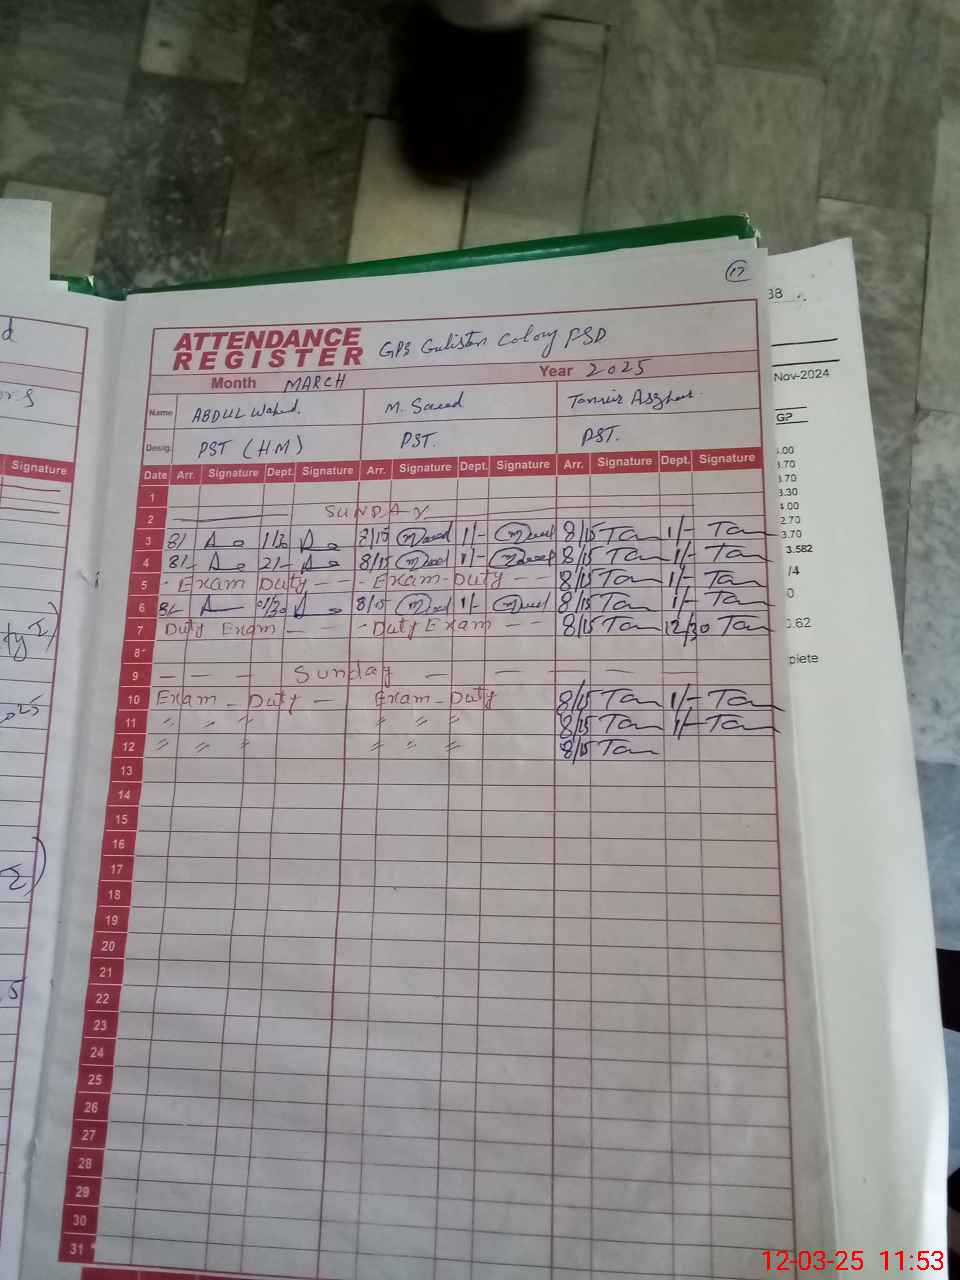 17
ATTENDANCE
REGISTER GPS Gulistan Colony FSD
Month MARCH Year 2025
Name ABDUL Wahed. M. Saeed
Desig. PST (HM) PST. PST.
Date Arr. Signature Dept. Signature Arr. Signature Dept. Signature Arr. Signature Dept. Signature
1
2 SUNDAY
3 8/- 1/30 8/15 1/- 8/15 Tan 1/- Tan
4 8/- 2/- 8/15 1/- 8/15 Tan 1/- Tan
5 - Exam Duty - - - Exam - Duty - - 8/15 Tan 1/- Tan
6 8/- 8/15 1/- 8/15 Tan 1/- Tan
7 Duty Exam - - - Duty Exam - - 8/15 Tan 12/30 Tan
8
9 - - - Sunday - - - -
10 Exam - Duty - Exam - Duty 8/15 Tan 1/- Tan
11 〃 〃 〃 〃 〃 〃 8/15 Tan 1/- Tan
12 〃 〃 〃 〃 〃 〃 8/15 Tan
13
14
15
16
17
18
19
20
21
22
23
24
25
26
27
28
29
30
31
Signature
Nov-2024
GP
3.582
plete
12-03-25 11:53